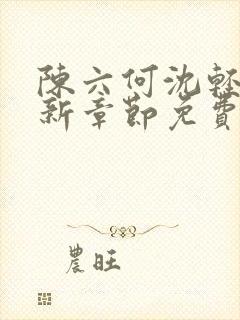 陳六何沈輕
新章節免費
農旺